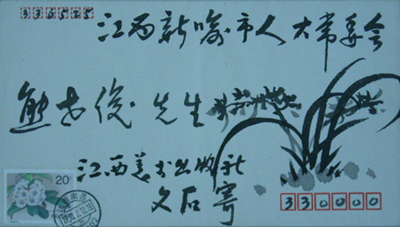 336525
江西新喻市人大常委会
熊古俊先生
江西美术出版社
文石寄
20
330000